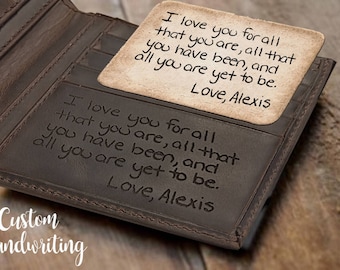 I love you for all
that you are, all that
you have been, and
all you are yet to be.
Love, Alexis
I love you for all
that you are, all that
you have been, and
all you are yet to be.
Love, Alexis
Custom
Handwriting